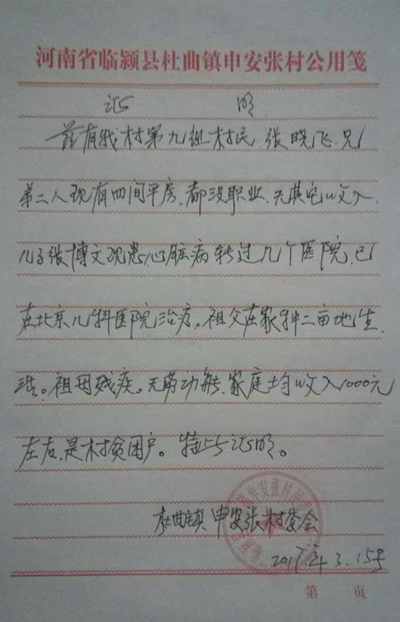 河南省临颍县杜曲镇申安张村公用笺
证 明
兹有我村第九组村民张晓飞,兄
弟二人现有四间平房,都没职业,无其它收入,
儿子张博文现患心脏病转过几个医院,已
在北京儿科医院治疗,祖父在家种二亩地生
活。祖母残疾,无劳功能,家庭均收入1000元
左右,是村贫困户。特此证明。
杜曲镇申安张村委会
3.15号
第 页